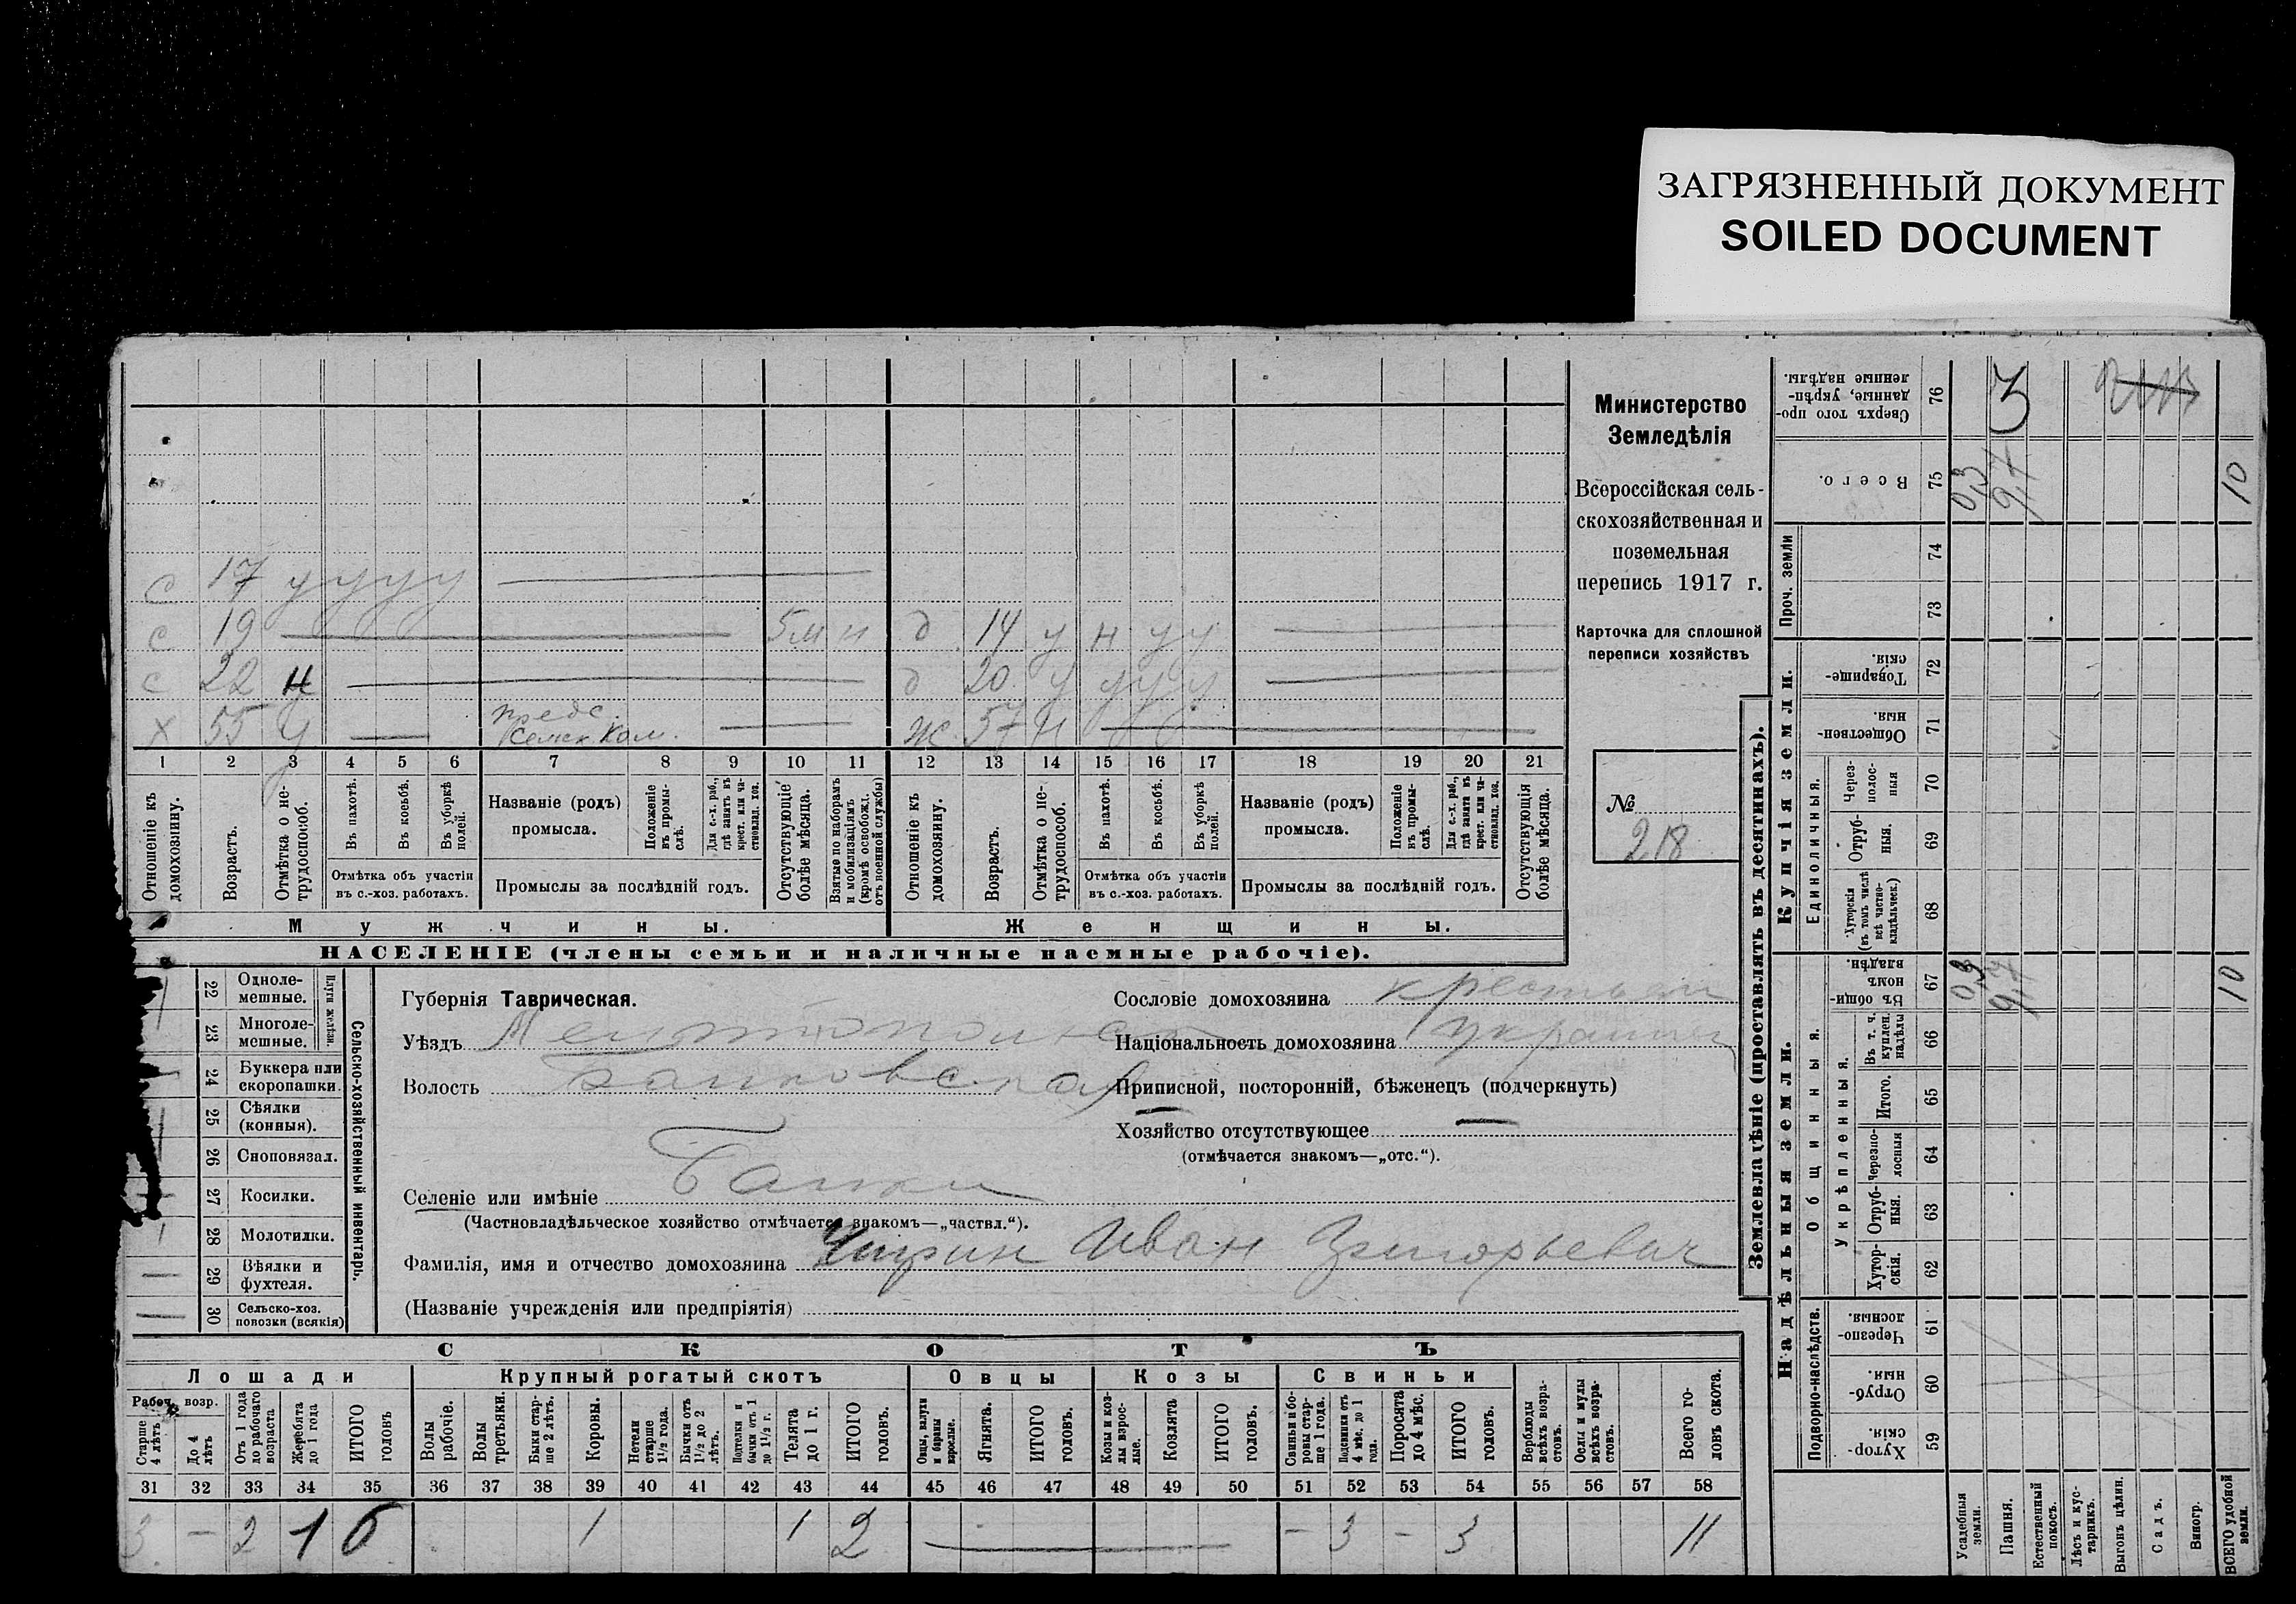 ЗАГРЯЗНЕННЫЙ ДОКУМЕНТ
SOILED DOCUMENT
с 17 у у у у
с 19 5м н д 14 у н у у
с 22 н д 20 у у у у
х 55 у предс. Ком. ж 57 н
1 2 3 4 5 6 7 8 9 10 11 12 13 14 15 16 17 18 19 20 21
Отношеніе къ домохозяину.
Возрастъ.
Отмѣтка о нетрудоспособ.
Въ пахотѣ.
Въ косьбѣ.
Въ уборкѣ полей.
Отмѣтка объ участіи
въ с.-хоз. работахъ.
Названіе (родъ)
промысла.
Положеніе въ промыслѣ.
Для с.-х. раб., гдѣ занятъ въ крест. или частновлад. хоз.
Промыслы за послѣдній годъ.
Отсутствующіе болѣе мѣсяца.
Взятые по наборамъ и мобилизаціямъ (кромѣ освобожд. отъ военной службы)
Отношеніе къ домохозяину.
Возрастъ.
Отмѣтка о нетрудоспособ.
Въ пахотѣ.
Въ косьбѣ.
Въ уборкѣ полей.
Отмѣтка объ участіи
въ с.-хоз. работахъ.
Названіе (родъ)
промысла.
Положеніе въ промыслѣ.
Для с.-х. раб., гдѣ занята въ крест. или частновлад. хоз.
Промыслы за послѣдній годъ.
Отсутствующія болѣе мѣсяца.
Мужчины.
Женщины.
НАСЕЛЕНІЕ (члены семьи и наличные наемные рабочіе).
Министерство
Земледѣлія
Всероссійская сель-
скохозяйственная и
поземельная
перепись 1917 г.
Карточка для сплошной
переписи хозяйствъ
№
218
Плуги желѣзн.
Сельско-хозяйственный инвентарь.
22 Одноле-
мешные.
23 Многоле-
мешные.
24 Буккера или
скоропашки.
25 Сѣялки
(конныя).
26 Сноповязал.
27 Косилки.
28 Молотилки.
29 Вѣялки и
фухтеля.
30 Сельско-хоз.
повозки (всякія)
Губернія Таврическая.
Уѣздъ Мелитопольск
Волость Балковская
Селеніе или имѣніе Балки
(Частновладѣльческое хозяйство отмѣчается знакомъ—„частвл.“).
Фамилія, имя и отчество домохозяина Иван Григорьевич
(Названіе учрежденія или предпріятія)
Сословіе домохозяина крестьян
Національность домохозяина украинец
Приписной, посторонній, бѣженецъ (подчеркнуть)
Хозяйство отсутствующее
(отмѣчается знакомъ—„отс.“).
СКОТЪ
Лошади
Крупный рогатый скотъ
Овцы
Козы
Свиньи
Рабоч. возр.
Старше 4 лѣтъ
До 4 лѣтъ
Отъ 1 года до рабочаго возраста
Жеребята до 1 года
ИТОГО головъ
Волы рабочіе.
Волы третьяки.
Быки старше 2 лѣтъ.
Коровы.
Нетели старше 1½ года.
Бычки отъ 1½ до 2 лѣтъ.
Подтелки и бычки отъ 1 до 1½ г.
Телята до 1 г.
ИТОГО головъ.
Овцы, валухи и бараны взрослые.
Ягнята.
ИТОГО головъ.
Козы и козлы взрослые.
Козлята
ИТОГО головъ.
Свиньи и боровы старше 1 года.
Подсвинки отъ 4 мѣс. до 1 года.
Поросята до 4 мѣс.
ИТОГО головъ.
Верблюды всѣхъ возрастовъ.
Ослы и мулы всѣхъ возрастовъ.
Всего головъ скота.
31 32 33 34 35 36 37 38 39 40 41 42 43 44 45 46 47 48 49 50 51 52 53 54 55 56 57 58
3 — 2 1 6 1 1 2 — — 3 — 3 11
Землевладѣніе (проставлять въ десятинахъ).
Надѣльныя земли.
Купчія земли.
Проч. земли
Подворно-наслѣдств.
Общинныя.
Укрѣпленныя.
Единоличныя.
Сверхъ того проданные, укрѣпленные надѣлы. 76 3
Всего. 75 0,3 9,7 10
74
73
Товарищескія. 72
Общественныя. 71
Черезполосныя 70
Отрубныя. 69
Хуторскія (въ томъ числѣ всѣ частновладѣльческ.) 68
Въ общинномъ владѣн. 67 0,3 9,7 10
Въ т. ч. куплен. надѣлы 66
Итого. 65
Черезполосныя 64
Отрубныя. 63
Хуторскія. 62
Черезполосныя. 61
Отрубныя. 60
Хуторскія. 59
Усадебныя земли.
Пашня.
Естественный покосъ.
Лѣсъ и кустарникъ.
Выгонъ цѣлин.
Садъ.
Виногр.
ВСЕГО удобной земли.